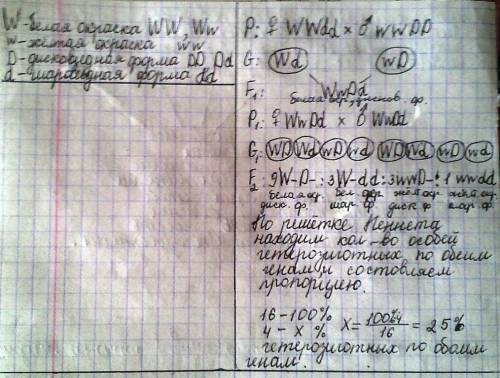 W-белая окраска WW, Ww
w-жёлтая окраска ww
D-дисковидная форма DD, Dd
d-шаровидная форма dd
P: ♀ WWdd × ♂ wwDD
G: Wd wD
F₁: WwDd
белая окр., дисков. ф.
P₁: ♀ WwDd × ♂ WwDd
G₁: WD Wd wD wd WD Wd wD wd
F₂: 9W-D- : 3W-dd : 3wwD- : 1 wwdd
белая окр. бел. окр. жёлт. окр. жёлт. окр.
диск. ф. шар. ф. диск. ф. шар. ф.
По решётке Пеннета
находим кол-во особей
гетерозиготных по обеим
генам и состовляем
пропорцию.
16 - 100%
4 - x % X = 100·4 / 16 = 25%
гетерозиготных по обоим
генам.